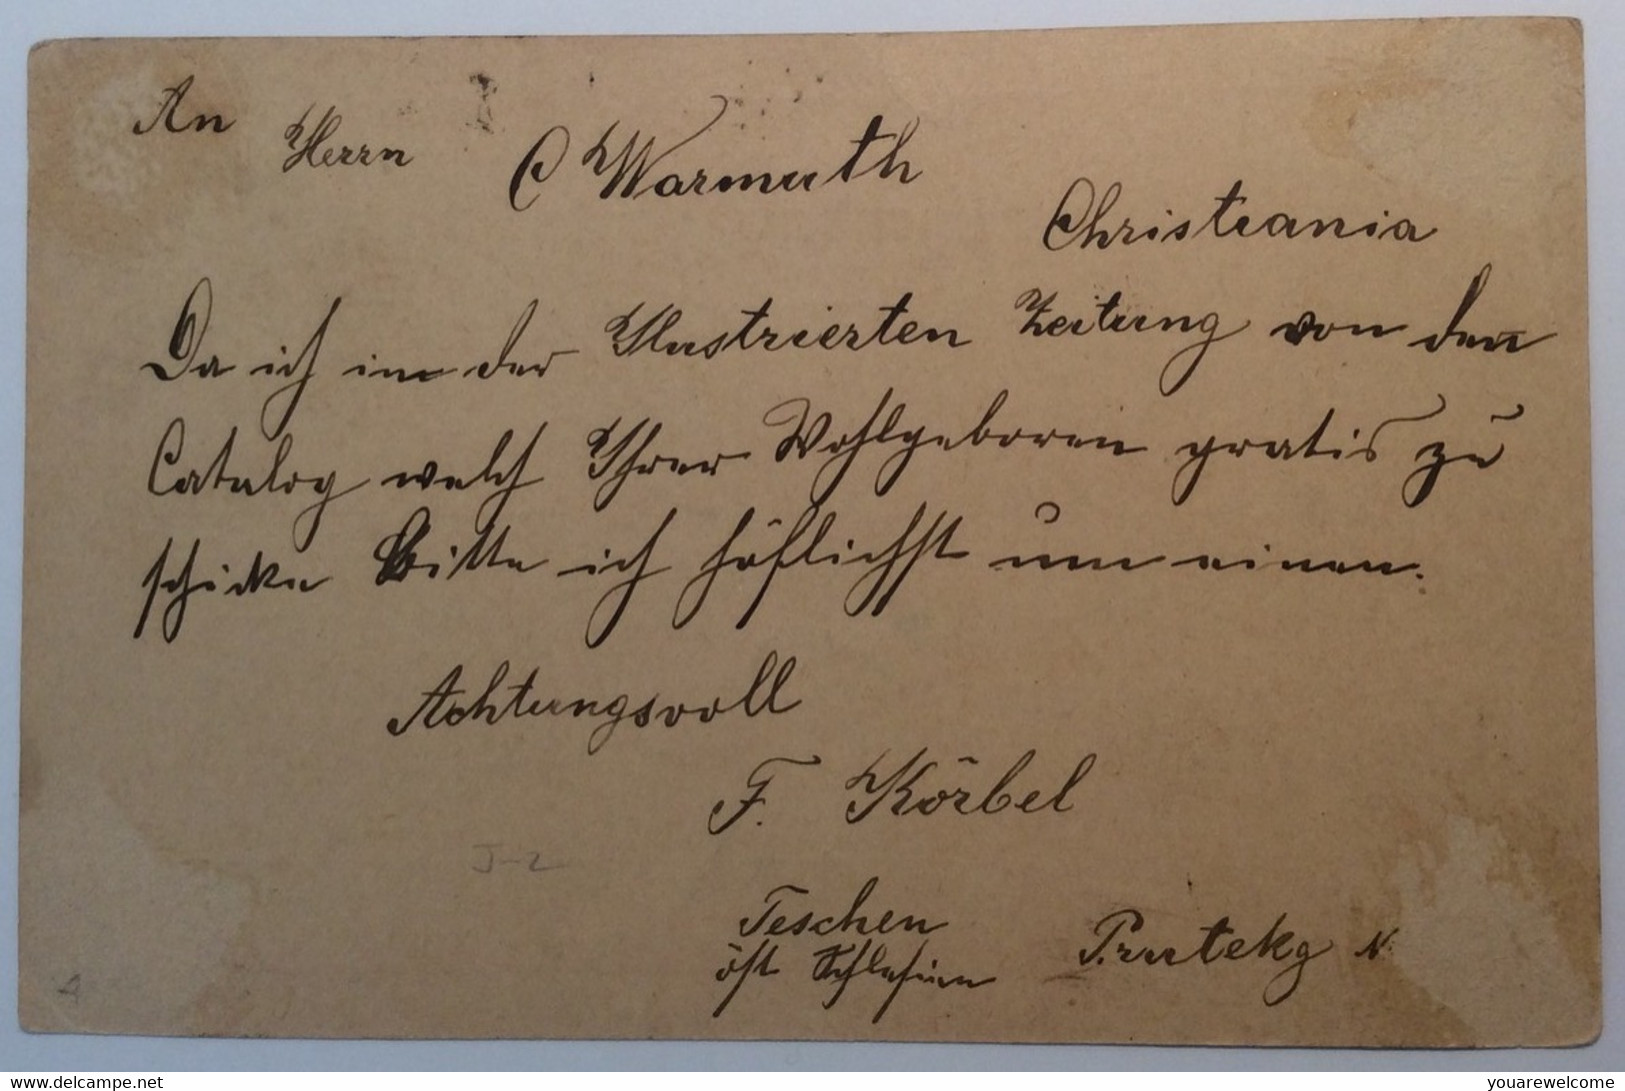 An
Herrn C Warmuth
Christiania
Da ich in der Illustrierten Zeitung von den
Catalog welch Ihrer Wohlgeboren gratis zu
schicken Bitte ich höflichst um einen.
Achtungsvoll
F. Körbel
J-2
Teschen
öst Schlesien
4
delcampe.net
youarewelcome